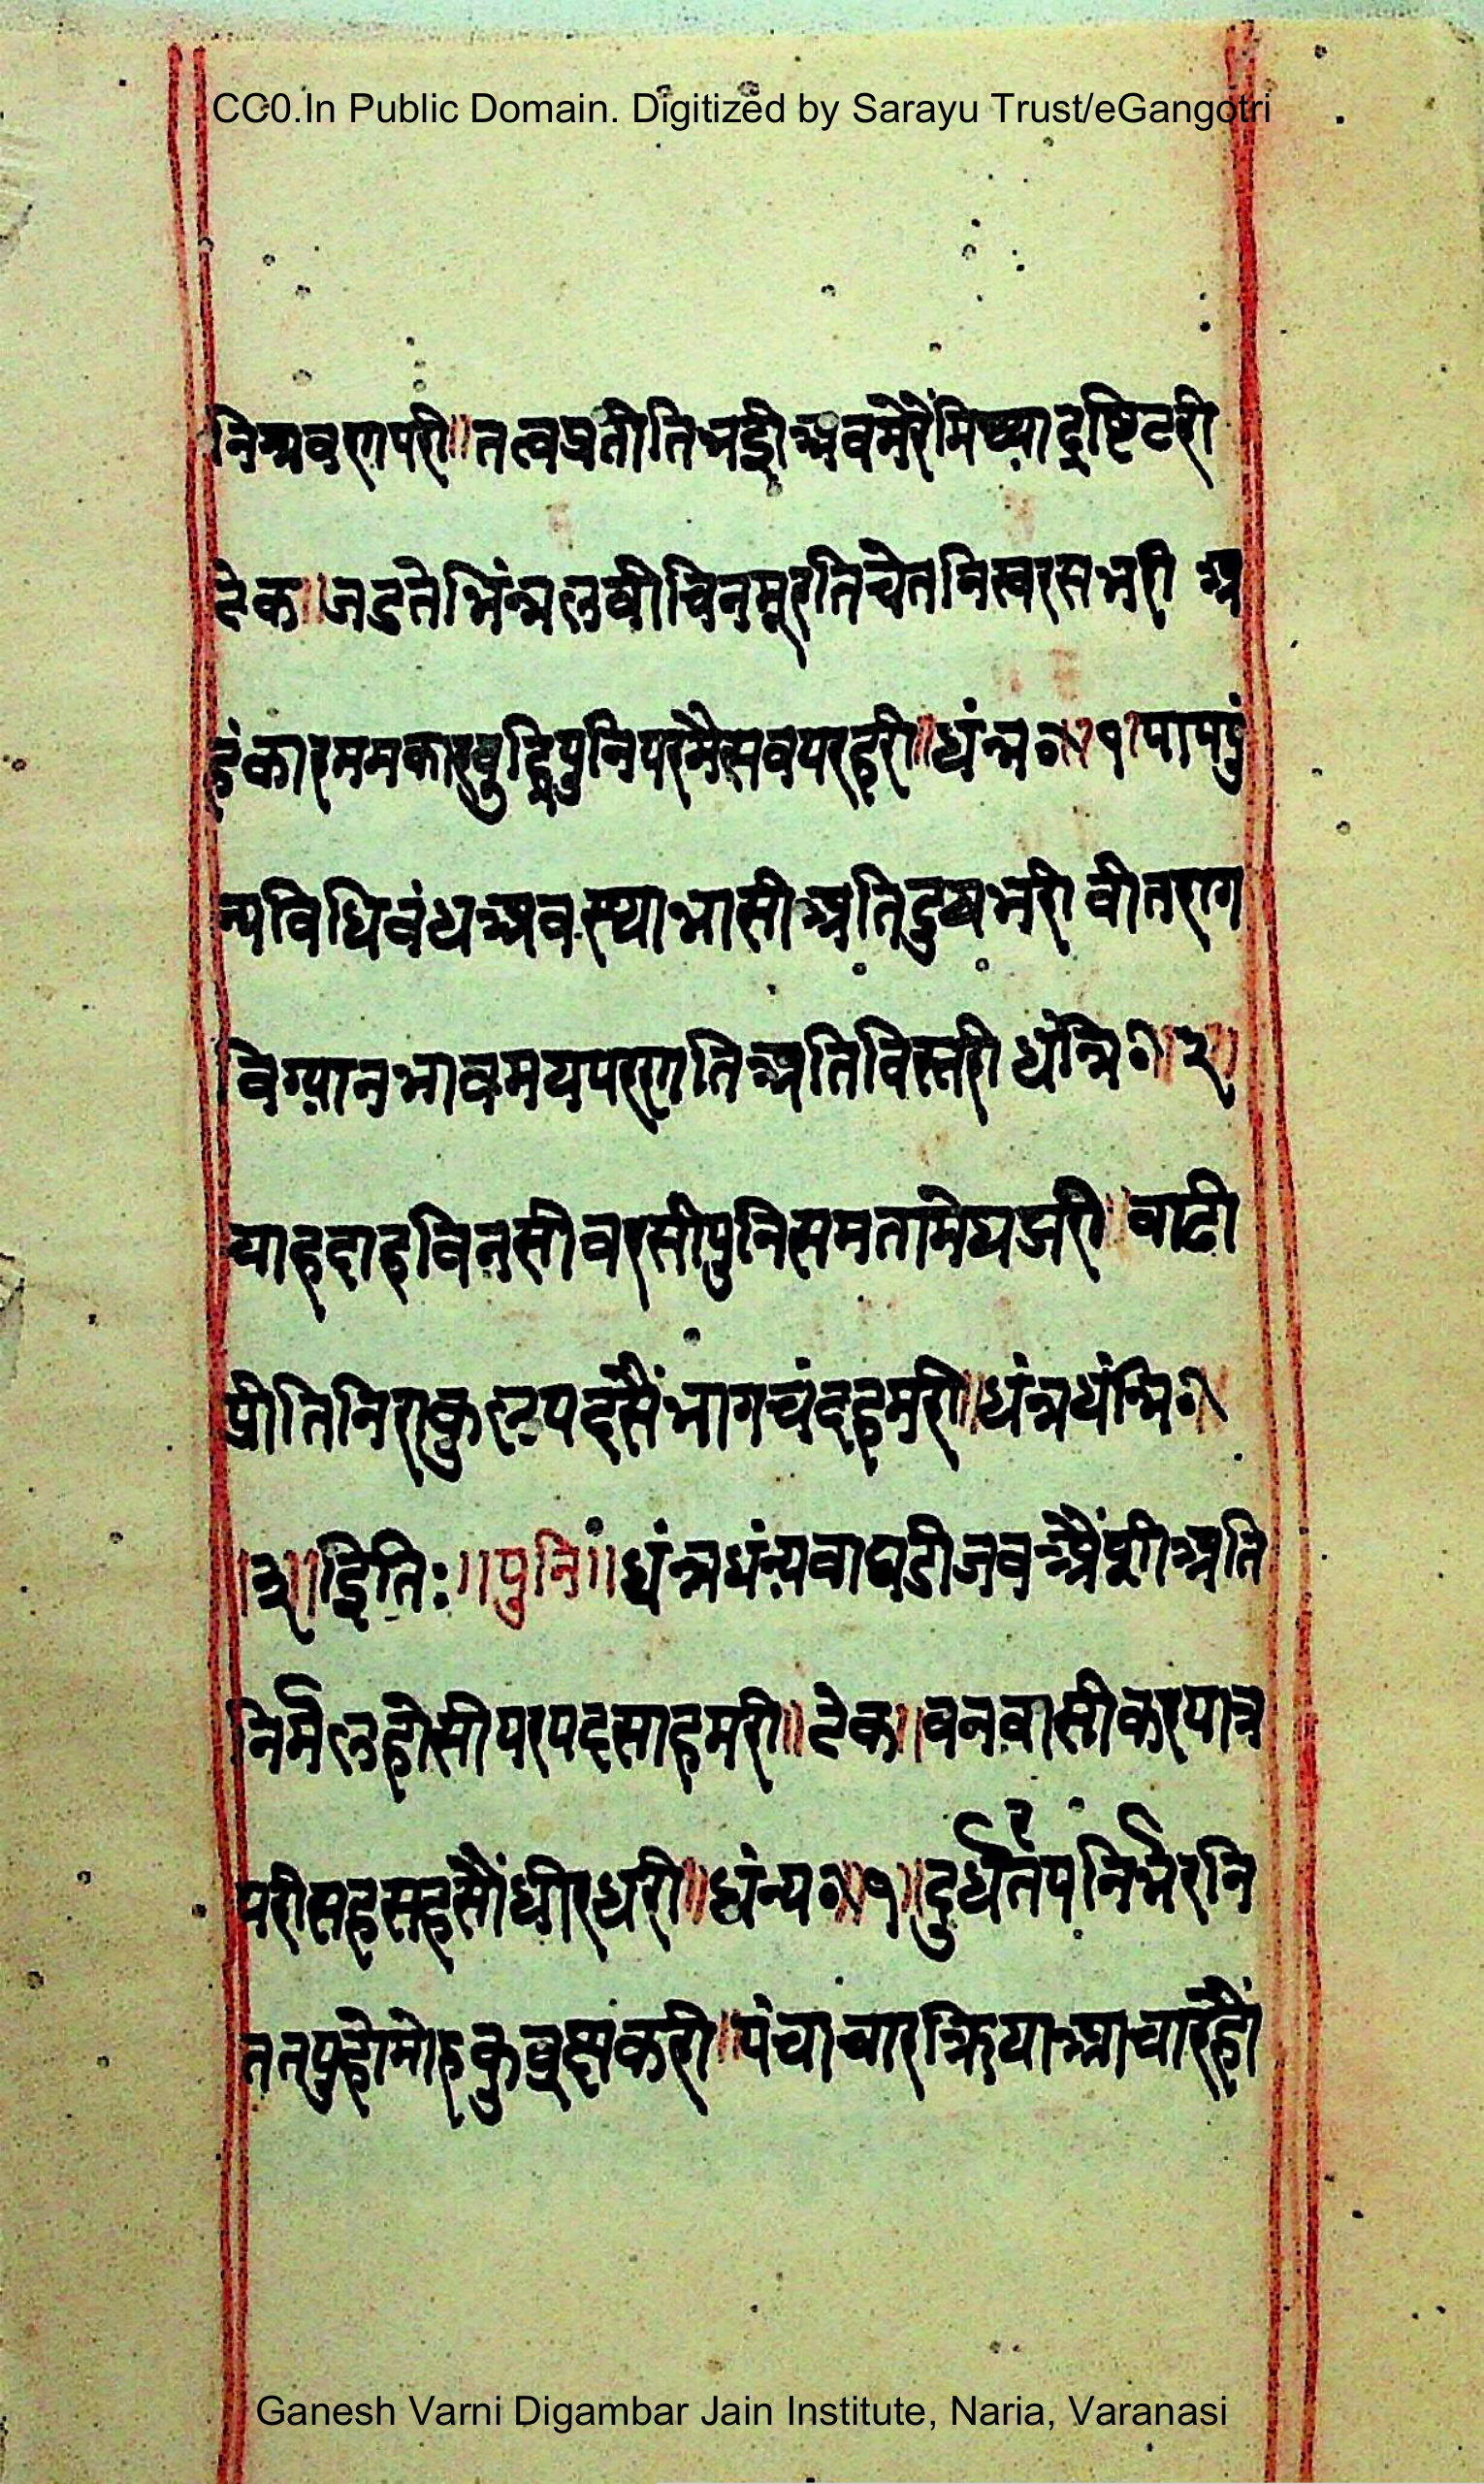 CC0.In Public Domain. Digitized by Sarayu Trust/eGangotri
निश्रवणपरी॥तत्वप्रतीतिभई अवमेरैंमिथ्याद्रष्टिटरी
टेक॥जडतेभिंन्नलषीचिनमूरतिचेतनिस्वरसभरी अ
हंकारममकारबुद्धिपुनिपरमैसवपरहरी॥धंन्न०॥१॥पापपुं
न्यविधिवंधअवस्थाभासीअतिदुषभरी वीतराग
विग्यानभावमयपरणतिअतिविस्तरी धंन्नि०॥२॥
चाहदाहविनसीवरसीपुनिसमतामेघझरी॥वाढी
प्रीतिनिराकुलपदसैंभागचंदहमरी॥धंन्नधंन्नि०॥
॥३॥इति:॥पुनि॥धंन्नधंन्यवाघडीजव अतिंं
निर्मलहोसीपरपदसाहमरी॥टेक॥वनवासीकरपात्र
परीसहसहसौंधीरधरी॥धंन्य०॥१॥दुर्धरतपनिर्भरनि
ततपुहोमोहकुव्रक्षकरी॥पंचाचारक्रियाआचारहौं
Ganesh Varni Digambar Jain Institute, Naria, Varanasi